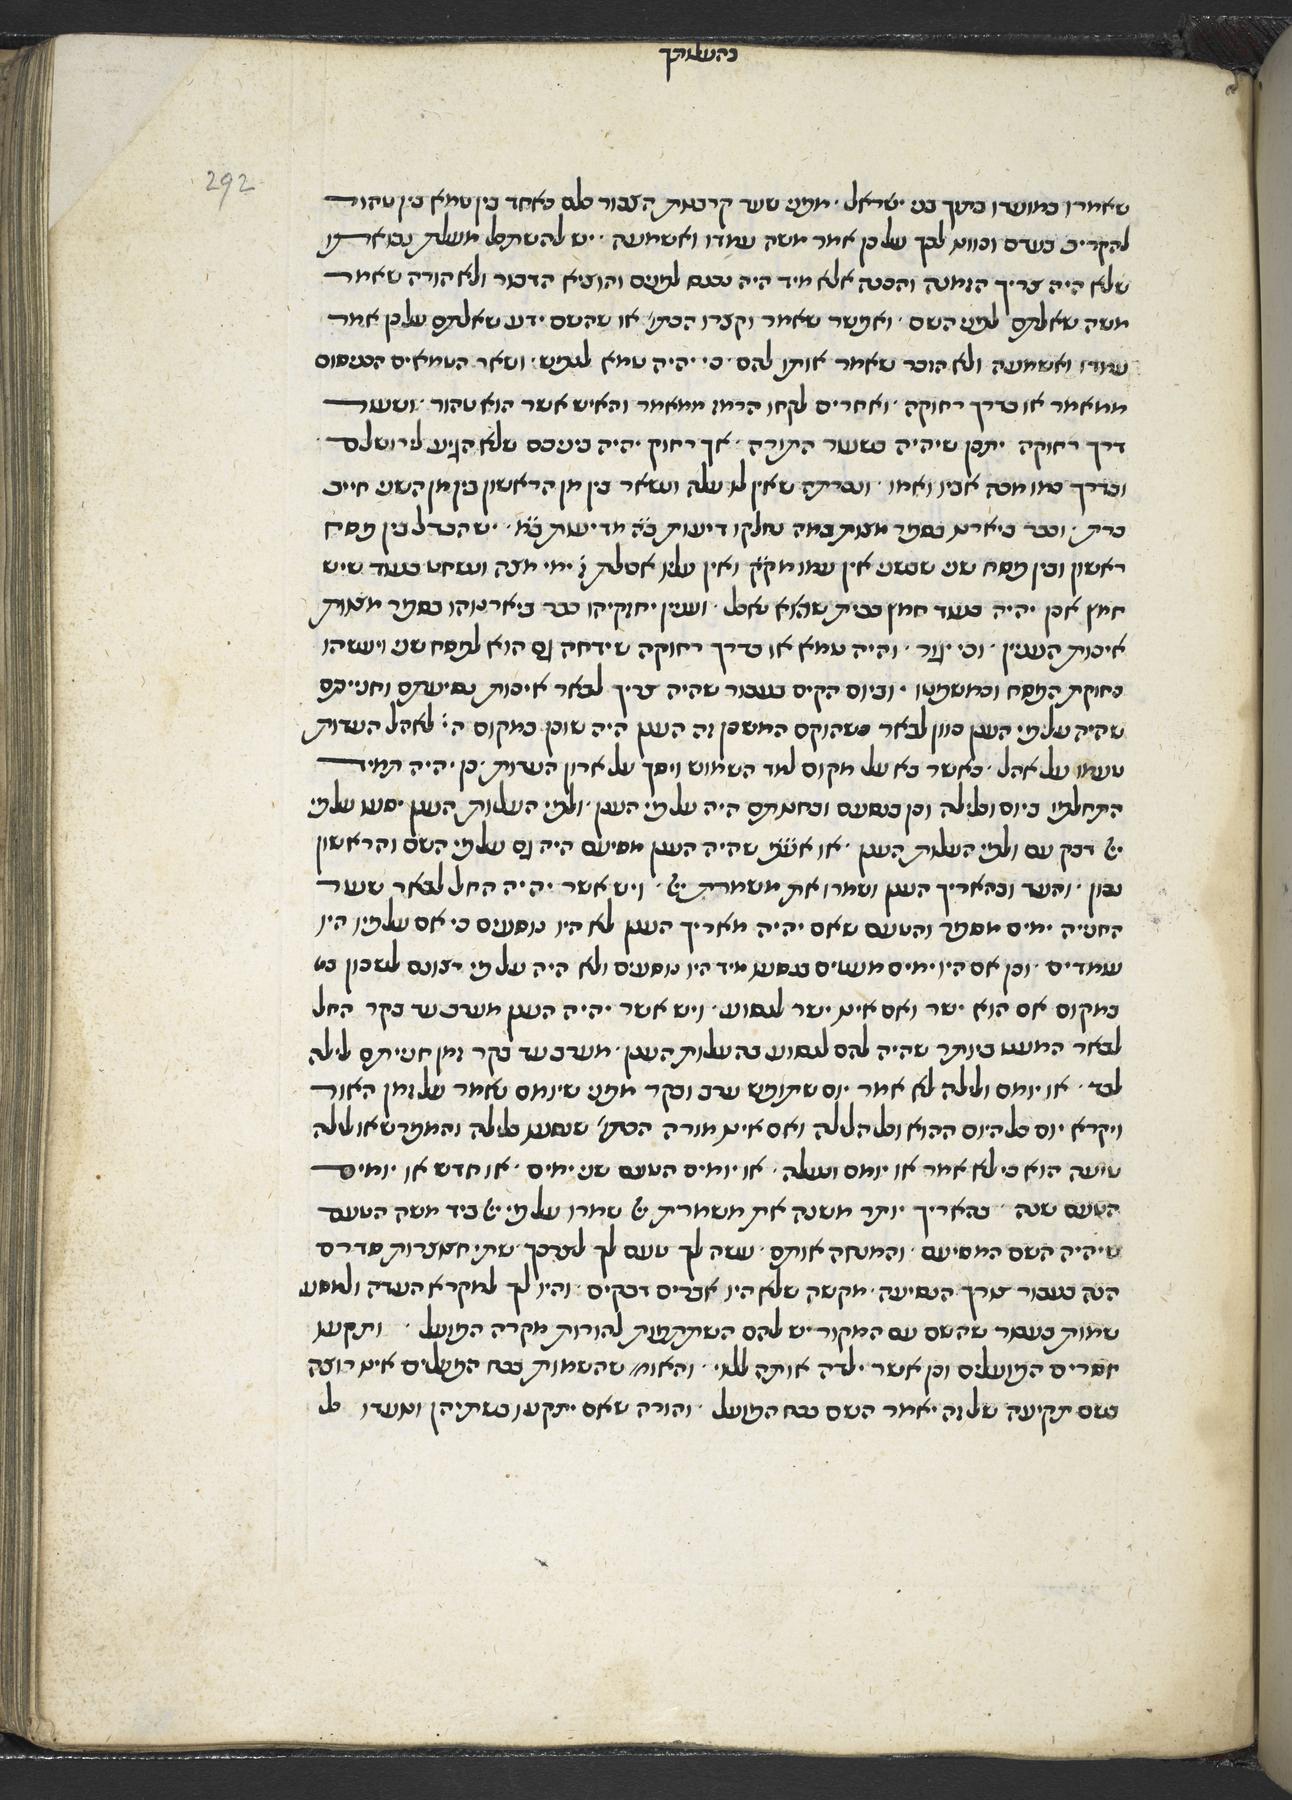 בהעלותך
292
שאמרו במועדו בתוך בני ישראל · מפני שעד קרבנות הצבור כלם כאחד בין טמא בין טהור
להקריב בעדם וכוונו לבך על כן אמר משה עמדו ואשמעה · יש להשתכל מעלת נבואתו
שלא היה צריך הזמנה והכנה אלא מיד היה נכנס לפנים והוציא הדבור ולא הורה שאמר
משה שאלתם לפני השם · ואפשר שאמר וקצרו הכתו׳ או שהשם ידע שאלתם על כן אמר
עמדו ואשמעה ולא הוכר שאמר אותו להם · כי יהיה טמא לנפש · ושאר הטמאים הכניסום
ממאמר או בדרך רחוקה · ואחרים לקחו הרמז ממאמר והאיש אשר הוא טהור · ושעור
דרך רחוקה יתכן שיהיה כשעור התורה · אך רחוק יהיה ביניכם שלא הגיע לירושלם ·
ובדרך כמו מכה אביו ואמו · ונכרתה שאין לו עלה ונשאר בין מן הראשון בין מן השני חייב
כרת · וכבר ביארנו בספר מצות במה נחלקו דיעות ב״ה מדיעות ב״מ · יש הבדל בין פסח
ראשון ובין פסח שני שבשני אין עמו מק״ק ואין עליו אכילת ז׳ ימי מצה ונשחט בעוד שיש
חמץ אכן יהיה בעוד חמץ בבית שהוא נאכל · וענין יחזקיהו כבר ביארנוהו בספר מצות
איכות הענין · וכי יגור · והיה טמא או בדרך רחוקה שידחה גם הוא לפסח שני ויעשהו
כחוקת הפסח וכמשפטו · וביום הקים בעבור שהיה צריך לבאר איכות נסיעתם וחנייתם
שהיה על פי הענן כוון לבאר כשהוקם המשכן זה הענן היה שוכן במקום ה׳ לאהל העדות
טעמו על אהל · כאשר בא על מקום למד השמוש ויסך על ארון העדות · כן יהיה תמיד
התחלפו ביום ובלילה וכן בנסעם ובחנותם היה על פי הענן · ולפי העלות הענן יסעו על פי
ייי דבק עם ולפי העלות הענן · או אע״פ שהיה הענן מסיעם היה גם על פי השם והראשון
נכון · והעד ובהאריך הענן ושמרו את משמרת ייי · ויש אשר יהיה החל לבאר שעור
החנייה ימים מספר והטעם שאם יהיה מאריך הענן לא היו נוסעים כי אם על פיו היו
עומדים · וכן אם היו ימים מעטים בנסעו מיד היו נוסעים ולא היה על פי רצונם לשכון בט
במקום אם הוא ישר ואם אינו ישר לנסוע · ויש אשר יהיה הענן מערב עד בקר החל
לבאר המעט ביותר שהיה להם לנסוע בהעלות הענן · מערב עד בקר זמן חנייתם לילה
לבד · או יומם ולילה לא אמר יום שתופש ערב ובקר מפני שיומם נאמר על זמן האור
ויקרא יום כל היום ההוא וכל הלילה ואם אינו מורה הכתו׳ שנסעו בלילה והמפרש או לילה
טועה הוא כי לא אמר או יומם ונעלה · או יומים הטעם שני ימים · או חדש או ימים
הטעם שנה · בהאריך יותר משנה את משמרת ייי שמרו על פי ייי ביד משה הטעם
שיהיה השם המסיעם · והמנחה אותם · עשה לך טעם לך לצרכך · שתי חצוצרות סדרם
הנה בעבור צורך הנסיעה · מקשה שלא היו אברים דבקים · והיו לך למקרא העדה ולמסע
שמות בעבור שהשם עם המקור יש להם השתתפות להורות מקרה הפועל · ותקעו
חסרים הפועלים וכן אשר ילדה אותה ללוי · והאומ׳ שהשמות בכח הפעלים אינו רוצה
בשם תקיעה של זה יאמר השם בכח הפועל · והורה שאם יתקעו בשתיהן ונועדו כל